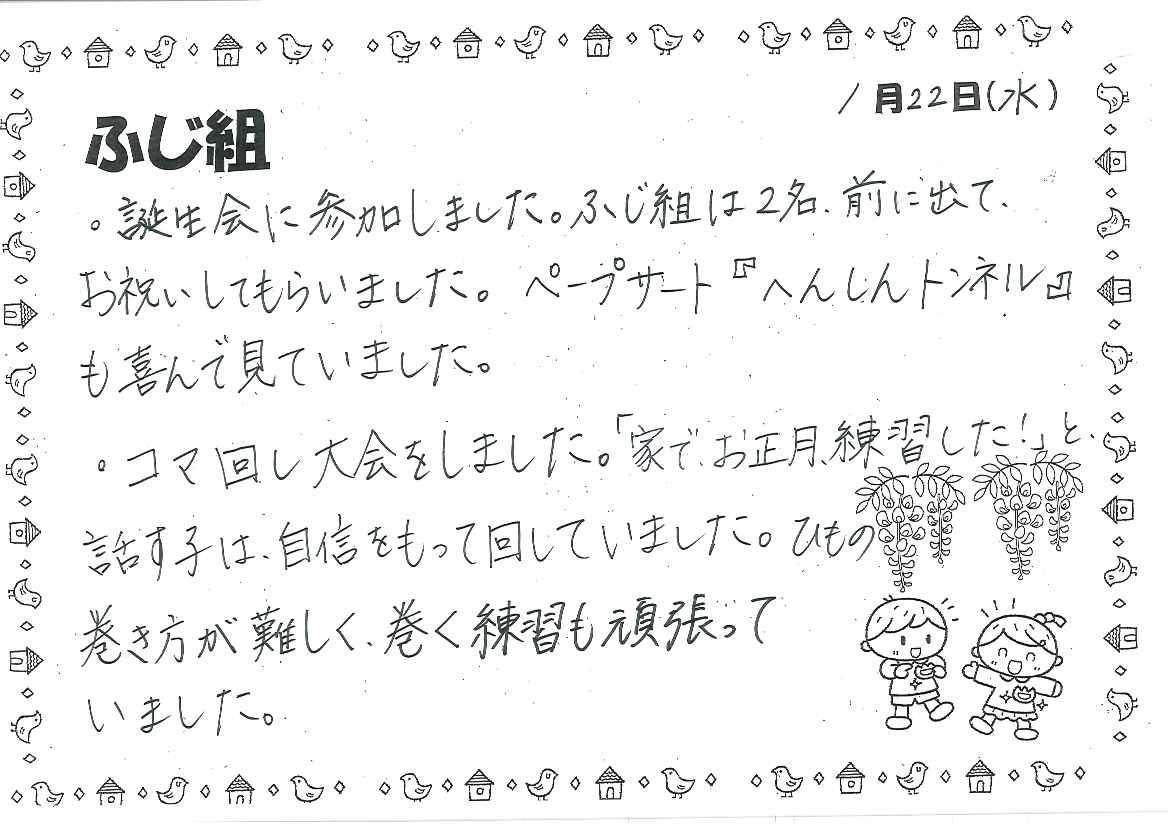 1月22日(水)
ふじ組
。誕生会に参加しました。ふじ組は2名、前に出て、
お祝いしてもらいました。ペープサート『へんしんトンネル』
も喜んで見ていました。
。コマ回し大会をしました。「家で、お正月、練習した!」と、
話す子は、自信をもって回していました。ひもの
巻き方が難しく、巻く練習も頑張って
いました。